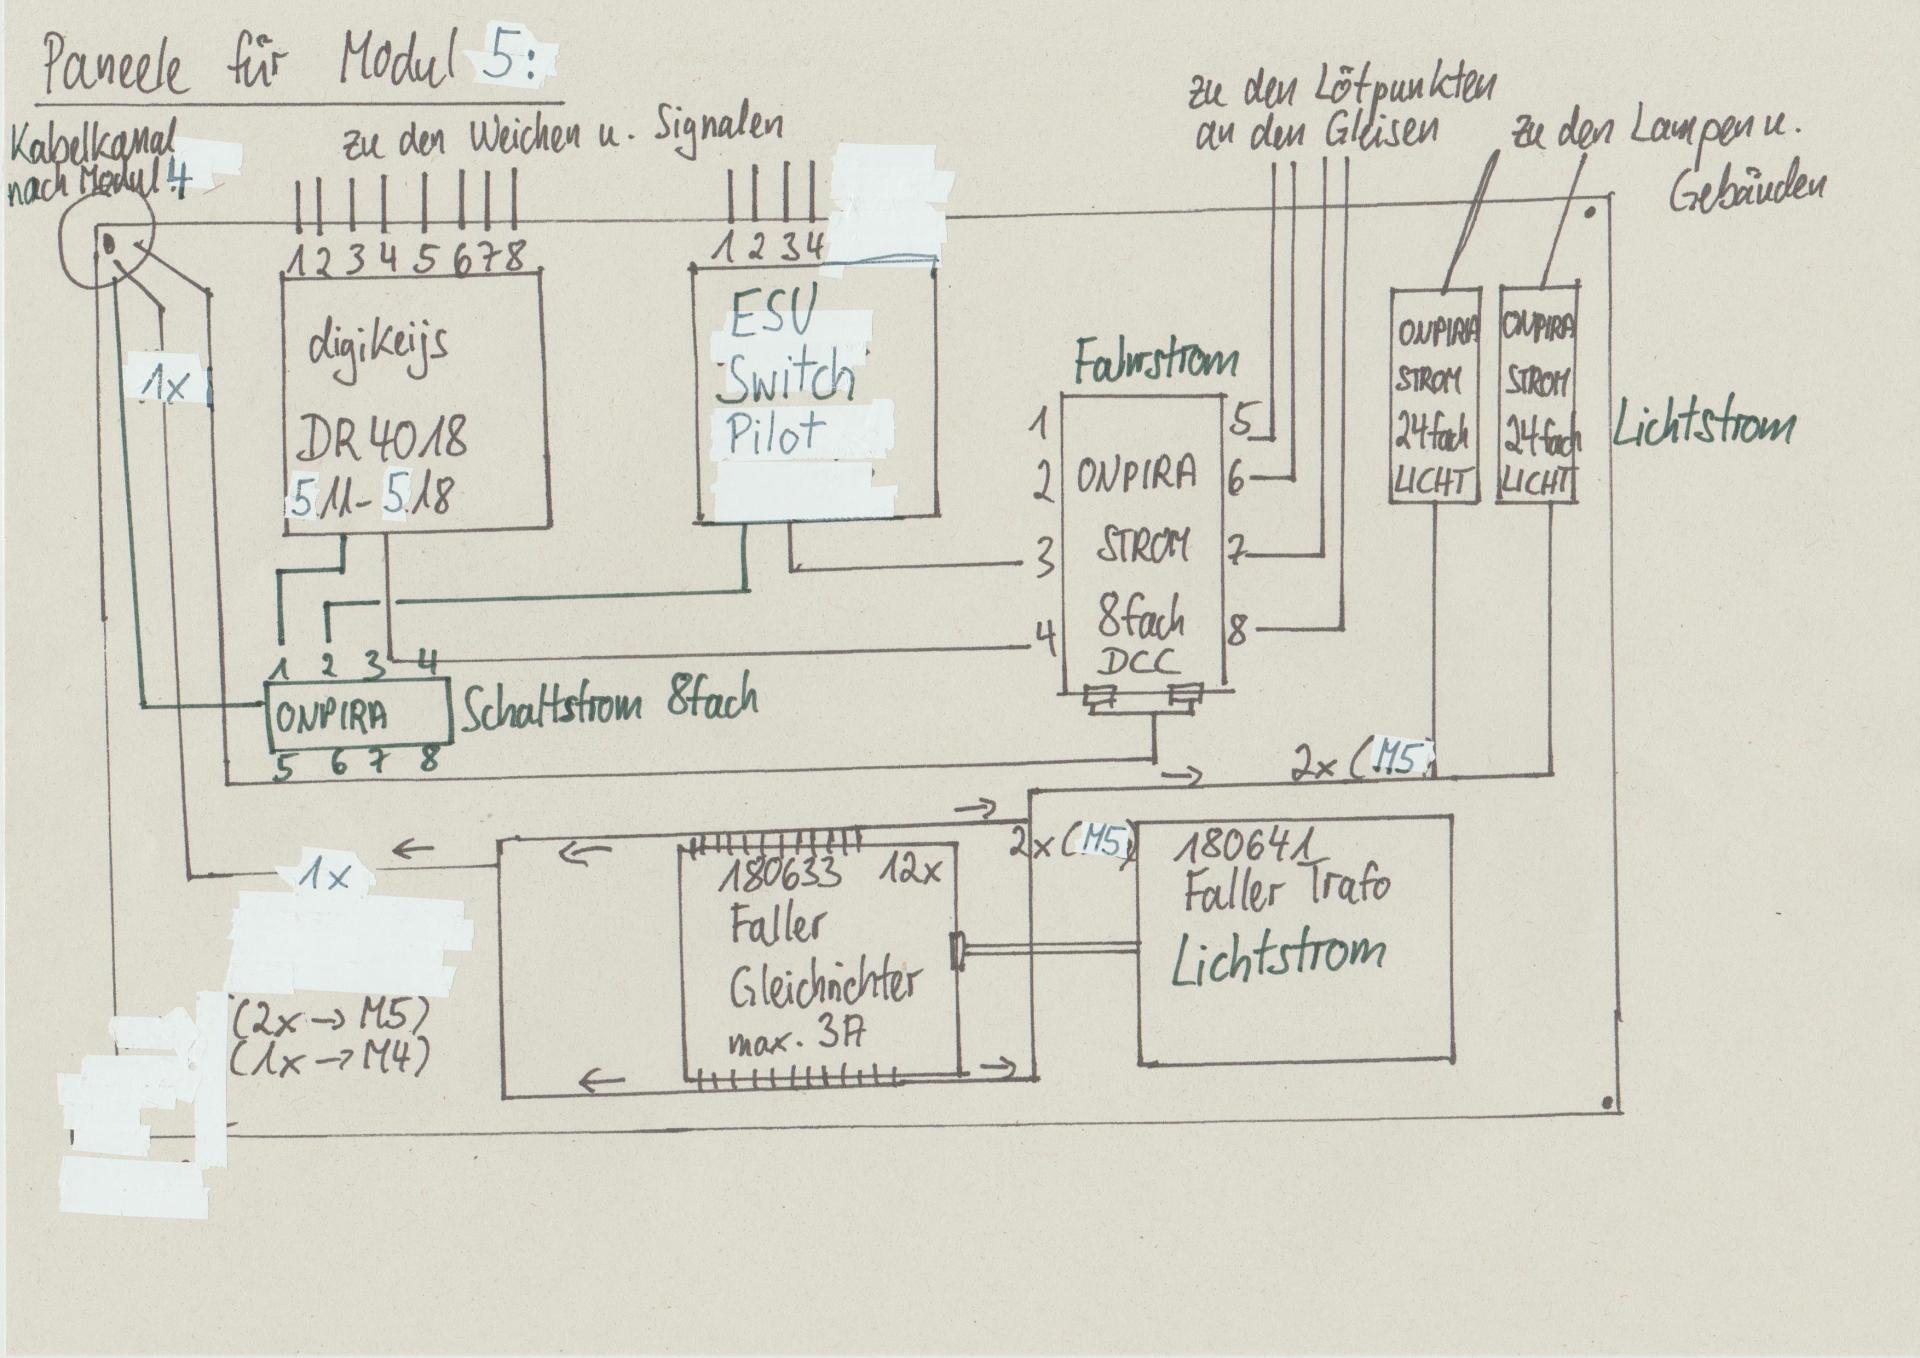 Paneele für Modul 5:
Kabelkanal
nach Modul 4
zu den Weichen u. Signalen
zu den Lötpunkten
an den Gleisen
zu den Lampen u.
Gebäuden
1 2 3 4 5 6 7 8
digikeijs
DR4018
511-518
1 2 3 4
ESU
Switch
Pilot
Fahrstrom
1
2
3
4
5
6
7
8
ONPIRA
STROM
8fach
DCC
ONPIRA
STROM
24fach
LICHT
ONPIRA
STROM
24fach
LICHT
Lichtstrom
1x
1 2 3 4
ONPIRA
5 6 7 8
Schaltstrom 8fach
2x (M5)
→
→
2x (M5)
←
←
1x
(2x → M5)
(1x → M4)
180633 12x
Faller
Gleichrichter
max. 3A
←
→
180641
Faller Trafo
Lichtstrom